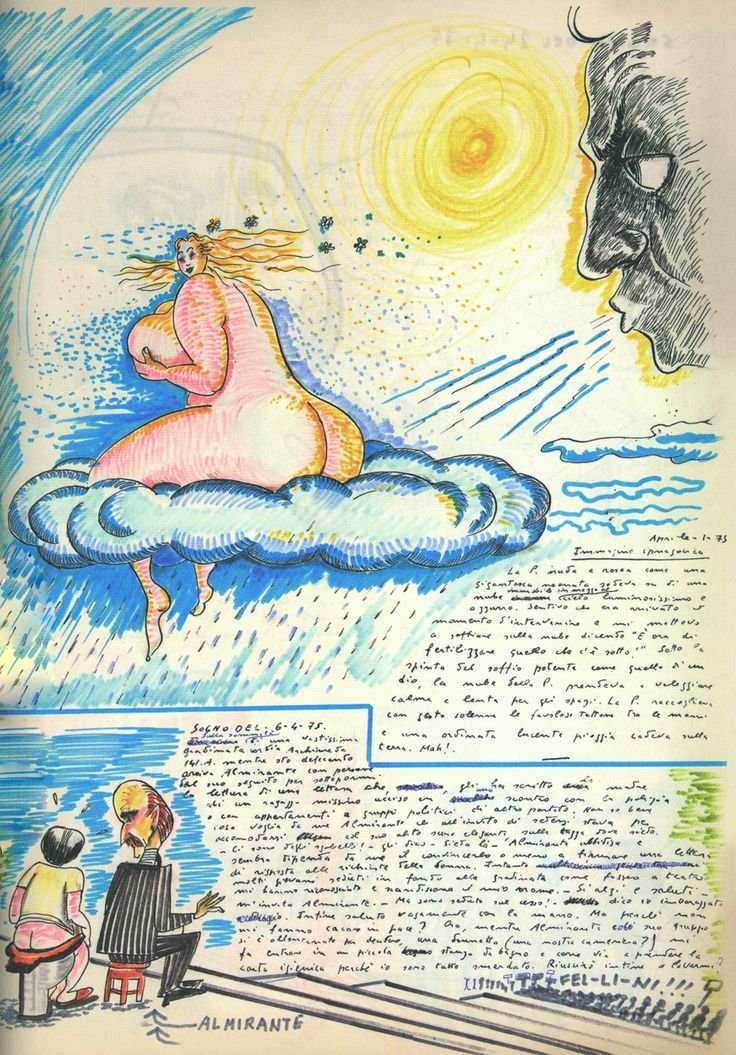 Aprile - 1 - 75
Immagine ipnagogica
La P. nuda e rosea come una
gigantesca neonata godeva su di una
nube in mezzo al cielo luminosissimo e
azzurro. Sentivo che era arrivato il
momento d'intervenire e mi mettevo
a soffiare sulla nube dicendo "È ora di
fertilizzare quello che c'è sotto!" Sotto la
spinta del soffio potente come quello di un
dio, la nube della P. prendeva a veleggiare
calma e lenta per gli spazi. La P. raccoglieva
con gesto solenne le favolose tettone tra le mani
e una ordinata lucente pioggia cadeva sulla
terra. Mah!
SOGNO DEL: 6-4-75.
Sulla sommità
di una vastissima
gradinata in via Archimede
141.A. mentre sto defecando
arriva Almirante con persone
del suo seguito per sottopormi
la lettura di una lettera che gli ha scritto la madre
di un ragazzo missino ucciso in uno scontro con la polizia
o con appartenenti a gruppi politici di altro partito. Non so bene
cosa voglia da me Almirante che all'invito di sedersi stava per
accomodarsi col suo abito scuro elegante, sulla tazza dove siedo.
- Ci sono degli sgabelli! - gli dico - Sieda lì - Almirante ubbidisce e
sembra dipenda da me il convincerlo a meno a firmare una lettera
di risposta alle richieste della donna. Intanto
molti giovani seduti in fondo alla gradinata come fossero a teatro
mi hanno riconosciuto e scandiscono il mio nome. - Si alzi e saluti -
m'invita Almirante. - Ma sono seduto sul cesso! - dico io imbarazzato
Infine saluto vagamente con la mano. Ma perché non
mi fanno cacare in pace? Ora, mentre Almirante col suo gruppo
si è allontanato, una donnetta (una nostra cameriera?) mi
fa entrare in un piccola stanza da bagno e corre via a prendere la
carta igienica perché io sono tutto smerdato. Riuscirò infine a lavarmi?
FEL-LI-NI!!!
ALMIRANTE